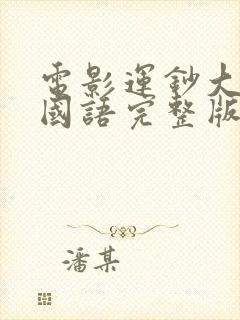 電影運鈔大
國語完整版
潘某